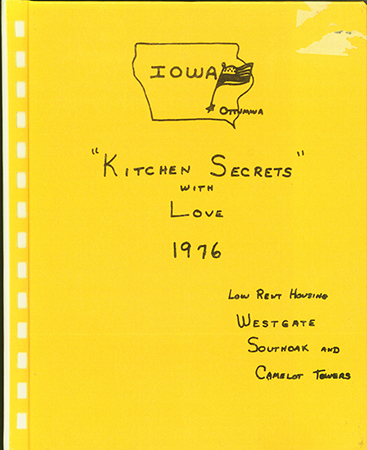 IOWA
OTTUMWA
"KITCHEN SECRETS"
WITH
LOVE
1976
LOW RENT HOUSING
WESTGATE
SOUTHOAK AND
CAMELOT TOWERS